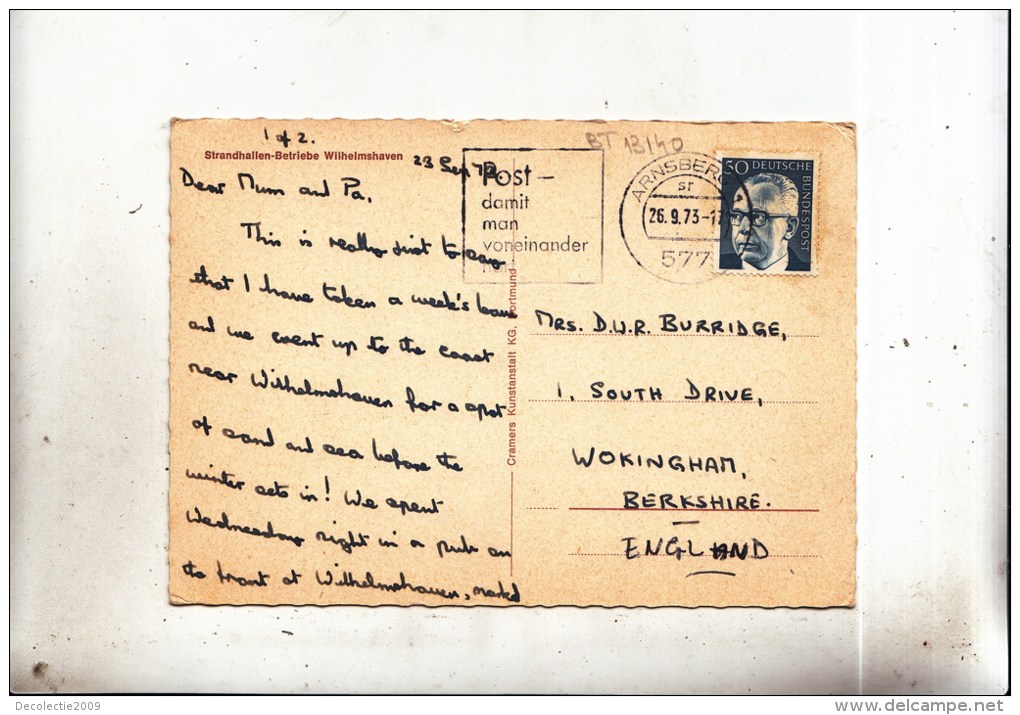 1 of 2.
BT 13140
Strandhallen-Betriebe Wilhelmshaven
23 Sep 73.
Dear Mum and Pa,
This is really just to say
that I have taken a week's leave
and we went up to the coast
near Wilhelmshaven for a spot
of sand and sea before the
winter sets in! We spent
Wednesday night in a pub on
the front at Wilhelmshaven, marked
Post –
damit
man
voneinander
ARNSBERG 1
sr
26.9.73-1
577
50 DEUTSCHE
BUNDESPOST
Cramers Kunstanstalt KG. Dortmund
MRS. D.W.R. BURRIDGE,
1, SOUTH DRIVE,
WOKINGHAM,
BERKSHIRE.
ENGLAND
Decolectie2009
www.delcampe.net